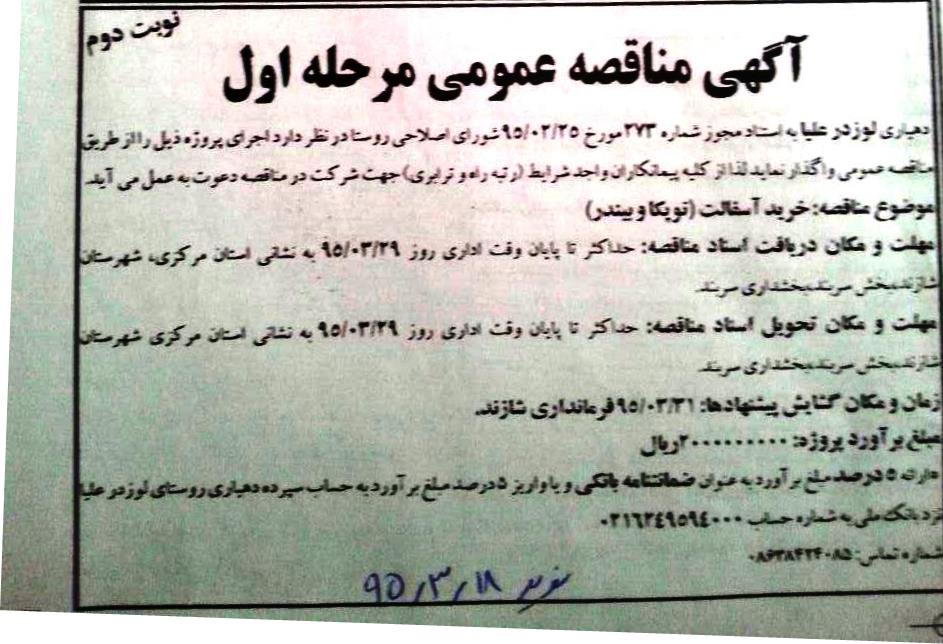 نوبت دوم
آگهی مناقصه عمومی مرحله اول
دهیاری لوزدر علیا به استناد مجوز شماره ۲۷۳ مورخ ۹۵/۰۲/۲۵ شورای اصلاحی روستا در نظر دارد اجرای پروژه ذیل را از طریق
مناقصه عمومی واگذار نماید لذا از کلیه پیمانکاران واجد شرایط (رتبه راه و ترابری) جهت شرکت در مناقصه دعوت به عمل می آید.
موضوع مناقصه: خرید آسفالت (توپکا و بیندر)
مهلت و مکان دریافت اسناد مناقصه: حداکثر تا پایان وقت اداری روز ۹۵/۰۳/۲۹ به نشانی استان مرکزی، شهرستان
شازند، بخش سربند، بخشداری سربند.
مهلت و مکان تحویل اسناد مناقصه: حداکثر تا پایان وقت اداری روز ۹۵/۰۳/۲۹ به نشانی استان مرکزی شهرستان
شازند، بخش سربند، بخشداری سربند.
زمان و مکان گشایش پیشنهادها: ۹۵/۰۳/۳۱ فرمانداری شازند.
مبلغ برآورد پروژه: ۲۰۰۰۰۰۰۰۰۰ ریال
ارائه ۵ درصد مبلغ برآورد به عنوان ضمانتنامه بانکی و یا واریز ۵ درصد مبلغ برآورد به حساب سپرده دهیاری روستای لوزدر علیا
نزد بانک ملی به شماره حساب ۰۲۱۶۲۴۹۵۹۴۰۰۰
شماره تماس: ۰۸۶۳۸۴۲۴۰۸۵
۹۵٫۳٫۱۸